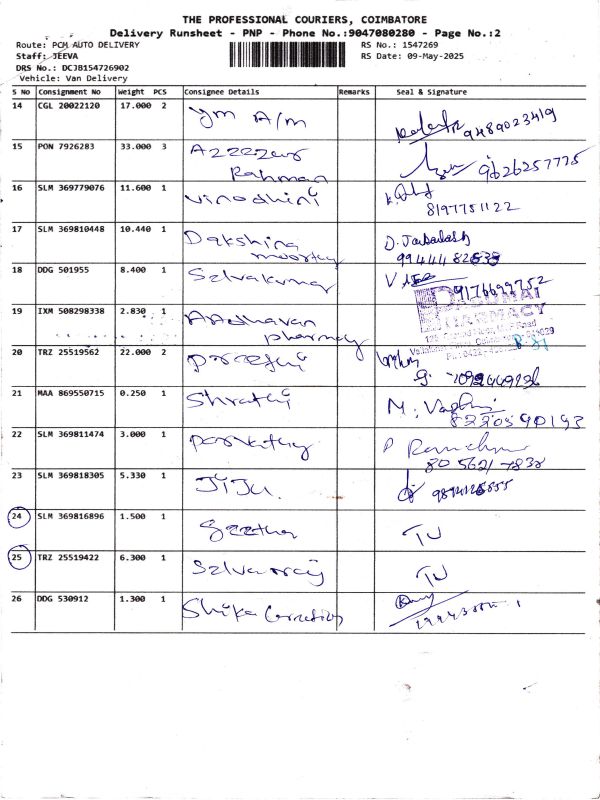 THE PROFESSIONAL COURIERS, COIMBATORE
Delivery Runsheet - PNP - Phone No.:9047080280 - Page No.:2
Route: PCM AUTO DELIVERY RS No.: 1547269
Staff: JEEVA RS Date: 09-May-2025
DRS No.: DCJB154726902
Vehicle: Van Delivery
S No Consignment No Weight PCS Consignee Details Remarks Seal & Signature
14 CGL 20022120 17.000 2 ym A/m 9489023419
15 PON 7926283 33.000 3 Azeezur Rahman 9626257775
16 SLM 369779076 11.600 1 Vinodhini 8197751122
17 SLM 369810448 10.440 1 Dakshina moorthy D. Jabadash
18 DDG 501955 8.400 1 Selvakumar 9176699752
19 IXM 508298338 2.830 1 Aadhavan pharmacy PHARMACY
20 TRZ 25519562 22.000 2
21 MAA 869550715 0.250 1 Shruthi M. 8220590193
22 SLM 369811474 3.000 1 Parvathy P 80 5621 7838
23 SLM 369818305 5.330 1 JIJU.
24 SLM 369816896 1.500 1 Geetha TU
25 TRZ 25519422 6.300 1 Selvarraj TU
26 DDG 530912 1.300 1 Shika